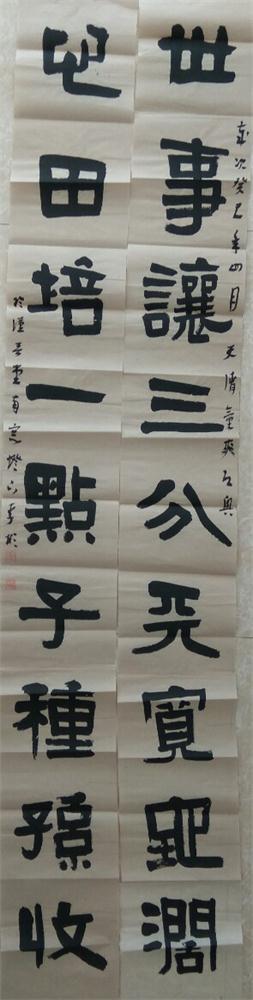 歲次癸巳年四月
世事讓三分天寬地濶
心田培一點子種孫收